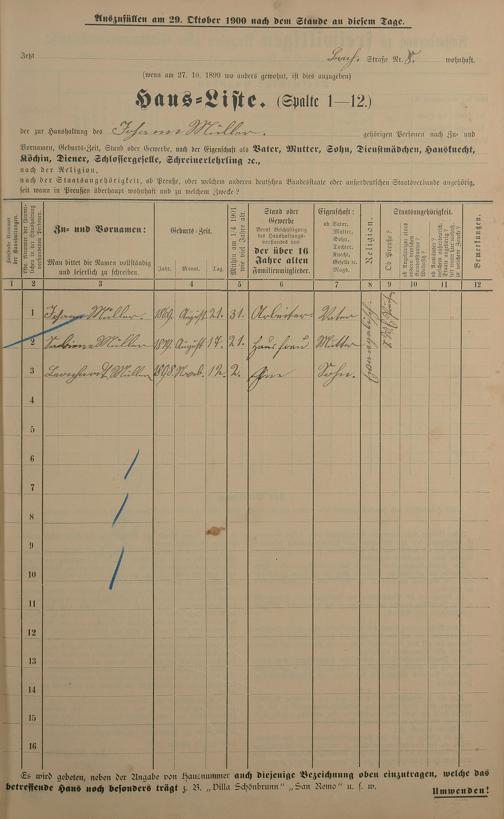 Auszufüllen am 29. Oktober 1900 nach dem Stande an diesem Tage.
Jetzt Bach. Straße Nr. 8. wohnhaft.
(wenn am 27. 10. 1899 wo anders gewohnt, ist dies anzugeben)
Haus-Liste. (Spalte 1—12.)
der zur Haushaltung des Johann Müller. gehörigen Personen nach Zu- und
Vornamen, Geburts-Zeit, Stand oder Gewerbe, nach der Eigenschaft als Vater, Mutter, Sohn, Dienstmädchen, Hausknecht,
Köchin, Diener, Schlossergeselle, Schreinerlehrling ec.,
nach der Religion,
nach der Staatsangehörigkeit, ob Preuße, oder welchem anderen deutschen Bundesstaate oder außerdeutschen Staatsverbande angehörig,
seit wann in Preußen überhaupt wohnhaft und zu welchem Zwecke?
Zu- und Vornamen:
Man bittet die Namen vollständig
und leserlich zu schreiben.
Geburts-Zeit.
Jahr. Monat. Tag.
Mithin am 1/4 1901
wie viel Jahre alt.
Stand oder
Gewerbe
der über 16
Jahre alten
Familienmitglieder.
Eigenschaft:
ob Vater,
Mutter,
Sohn,
Tochter,
Knecht,
Geselle o.
Magd.
Religion
Staatsangehörigkeit.
Ob Preuße?
Bemerkungen.
1 2 3 4 5 6 7 8 9 10 11 12
1 Johann Müller. 1869 August 21. 31. Arbeiter Vater
2 Müller August 17. 21. Hausfrau Mutter
3 Müller 1898 Novb. 12. 2. Sohn.
4
5
6
7
8
9
10
11
12
13
14
15
16
Es wird gebeten, neben der Angabe von Hausnummer auch diejenige Bezeichnung oben einzutragen, welche das
betreffende Haus noch besonders trägt z. B. "Villa Schönbrunn" "San Remo" u. s. w.
Umwenden!